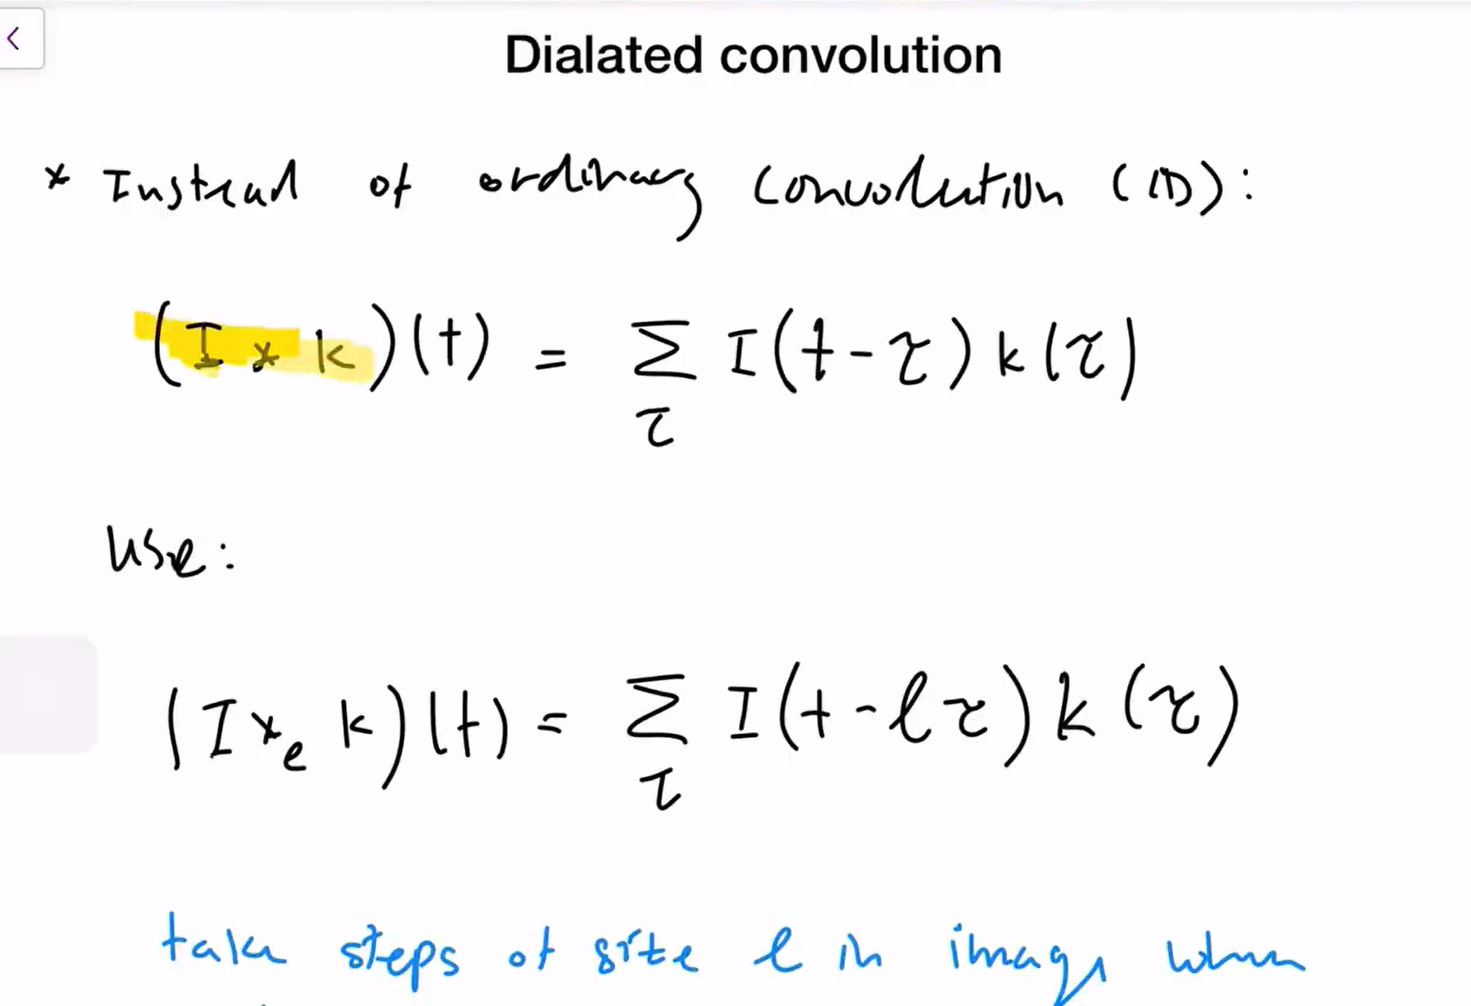 Dialated convolution
* Instead of ordinary convolution (1D):
(I * k)(t) = Σ I(t-τ) k(τ)
τ
Use:
(I *ₗ k)(t) = Σ I(t-ℓτ) k(τ)
τ
take steps of size ℓ in image when